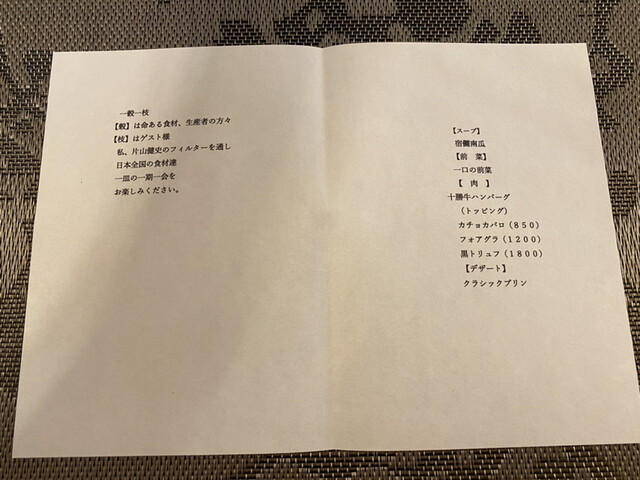 一穀一枝
【穀】は命ある食材、生産者の方々
【枝】はゲスト様
私、片山健史のフィルターを通し
日本全国の食材達
一皿の一期一会を
お楽しみください。
【スープ】
宿儺南瓜
【前 菜】
一口の前菜
【 肉 】
十勝牛ハンバーグ
（トッピング）
カチョカバロ（８５０）
フォアグラ（１２００）
黒トリュフ（１８００）
【デザート】
クラシックプリン